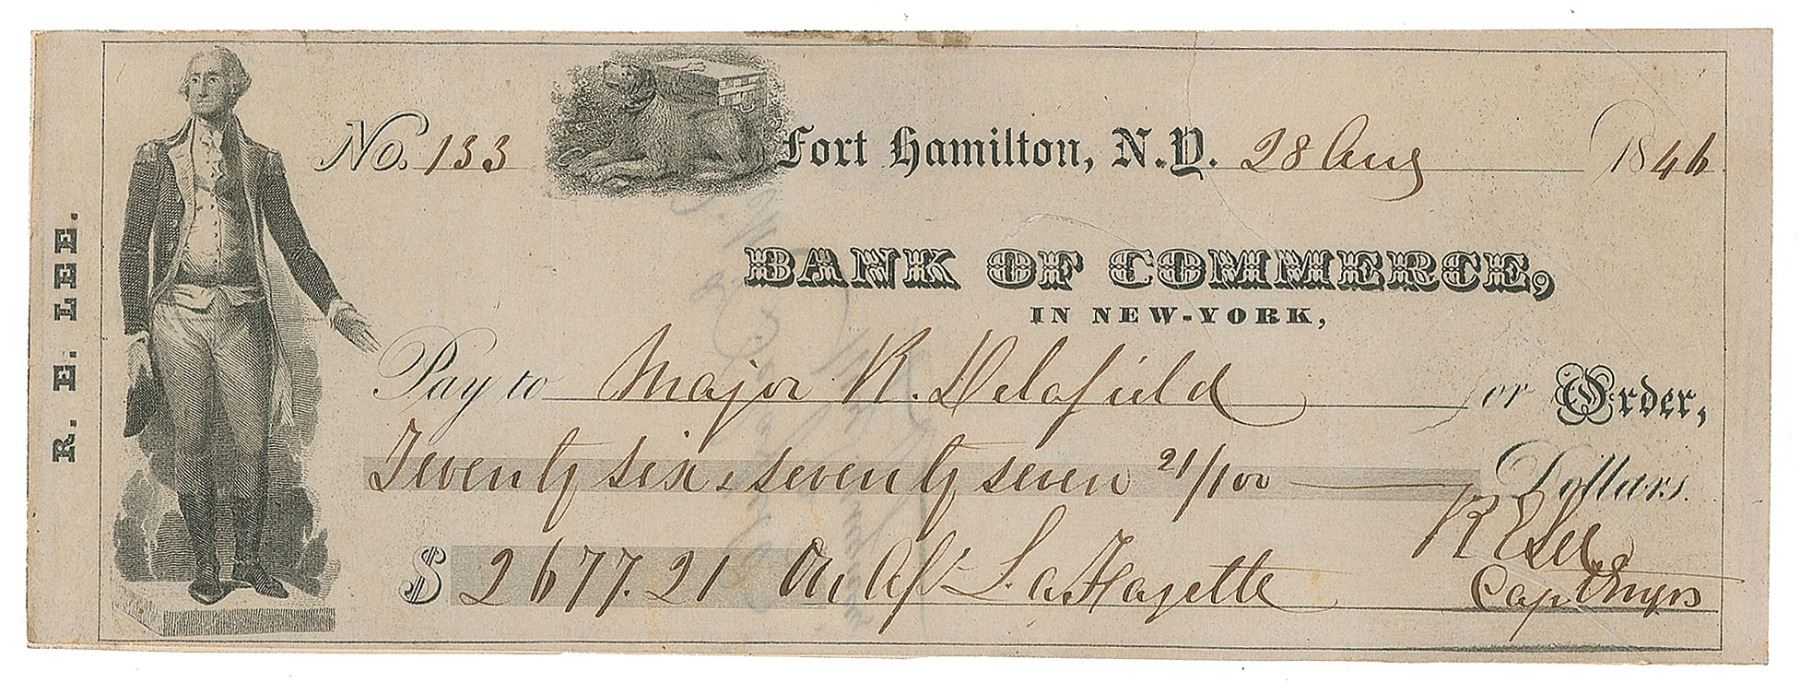 R. E. LEE.
No. 133 Fort Hamilton, N.Y. 28 Aug 1846
BANK OF COMMERCE,
IN NEW-YORK,
Pay to Major R. Delafield or Order,
Twenty six & seventy seven 21/100 Dollars.
$ 2677.21 On A/c La Fayette
R E Lee
Cap Engrs